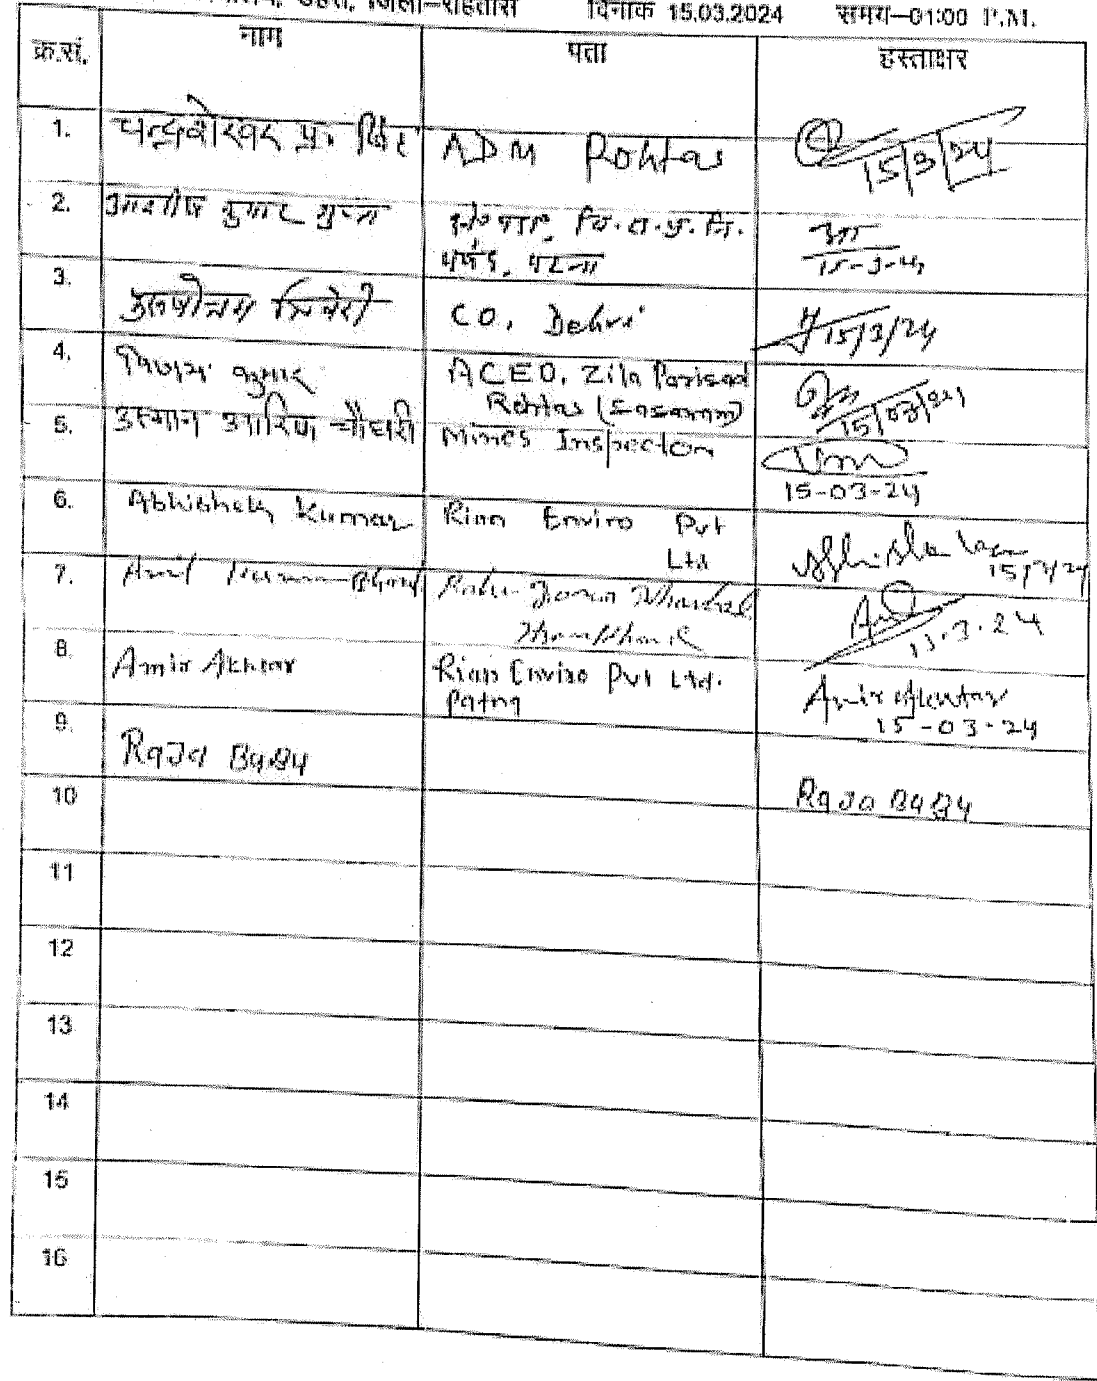 डेहरी, जिला–रोहतास दिनांक 15.03.2024 समय–01:00 P.M.
क्र.सं. नाम पता हस्ताक्षर
1. चन्द्रशेखर प्र. सिंह ADM Rohtas
15/3/24
2. आशीष कुमार गुप्ता
पर्षद, पटना
15-3-24
3. पुरुषोत्तम त्रिवेदी CO, Dehri 15/3/24
4. विजय कुमार ACEO, Zila Parisad
Rohtas (Sasaram)
15/03/24
5. उस्मान आरिफ चौधरी Mines Inspector
15-03-24
6. Abhishek Kumar Rian Enviro Pvt
Ltd
15/3/24
7.
8. Amir Akhtar Rian Enviro Pvt Ltd.
Patna
Amir Akhtar
15-03-24
9. Raja Babu
Raja Babu
10
11
12
13
14
15
16